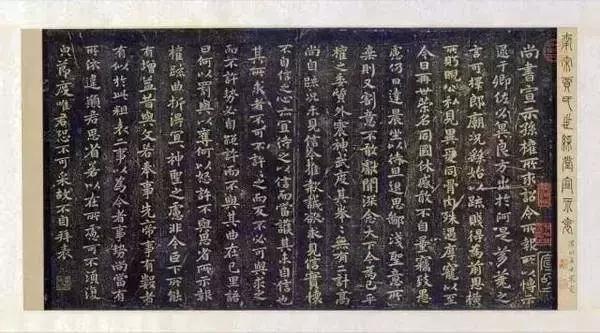 南宋賈氏
宣示表
尚書宣示孫權所求詔令所報所以博示
逮于卿佐必冀良方出於阿是芻蕘之
言可擇郎廟況繇始以疏賤得為前恩橫
所盱睨公私見異愛同骨肉殊遇厚寵以至
今日再世榮名同國休慼敢不自量竊致愚
慮仍日達晨坐以待旦退思鄙淺聖意所
棄則又割意不敢獻聞深念天下今為已平
權之委質外震神武度其拳拳無有二計高
尚自疏況未見信今推款誠欲求見信實懷
不自信之心亦宜待之以信而當護其未自信也
其所求者不可不許許之而反不必可與求之
而不許勢必自絕許而不與其曲在己里語
曰何以罰與以奪何以怒許不與思省所示報
權疏曲折得宜宜神聖之慮非今臣下所能
有增益昔與文若奉事先帝事有數者
有似於此粗表二事以為今者事勢尚當有
所依違願君思省若以在所慮可不須復
皃節度唯君恐不可采故不自拜表